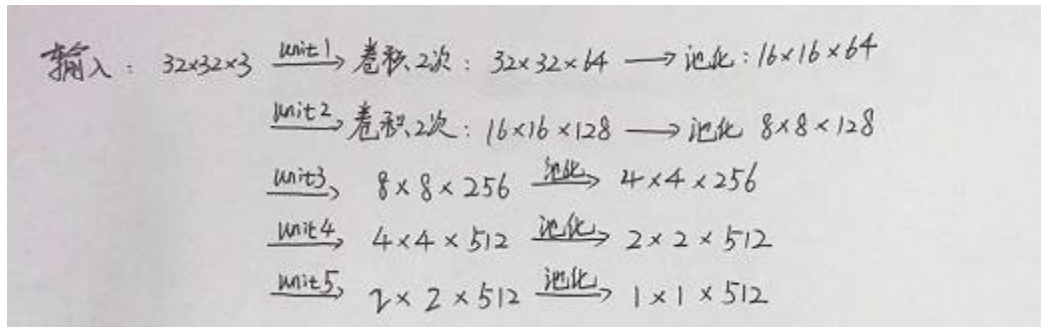 输入: 32×32×3 unit1→ 卷积2次: 32×32×64 → 池化: 16×16×64
unit2→ 卷积2次: 16×16×128 → 池化 8×8×128
unit3→ 8×8×256 池化→ 4×4×256
unit4→ 4×4×512 池化→ 2×2×512
unit5→ 2×2×512 池化→ 1×1×512